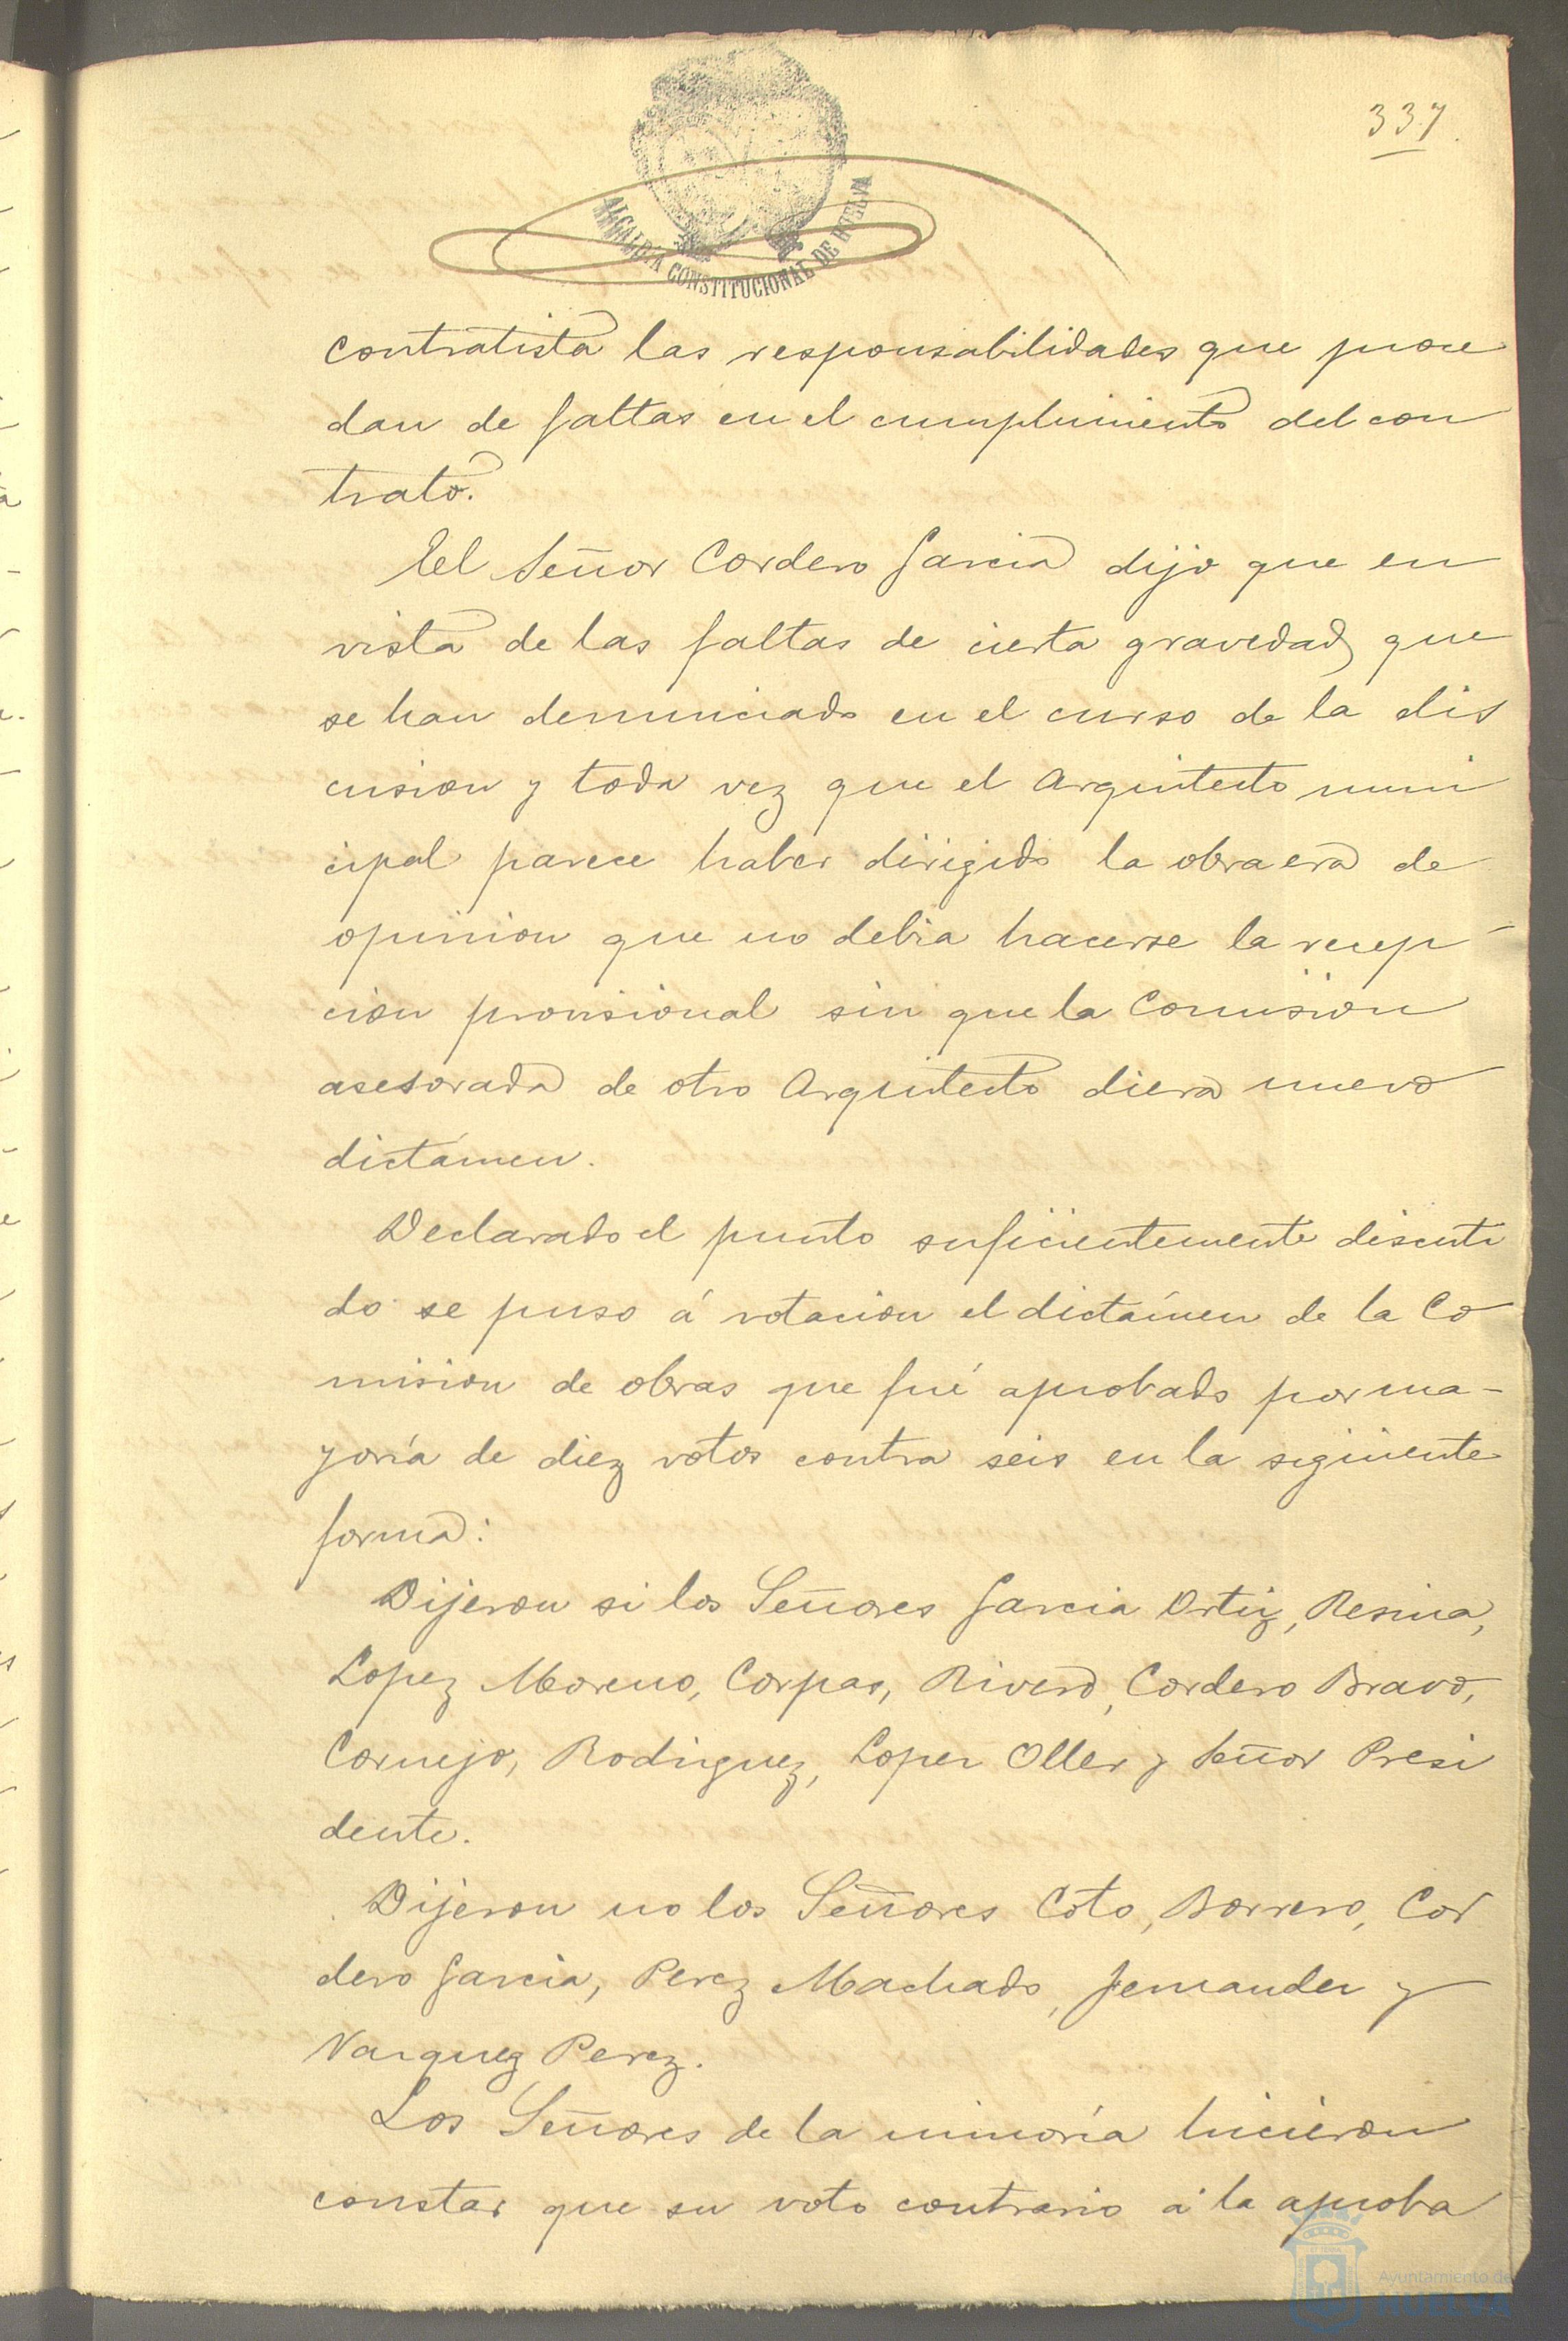 337
ALCALDIA CONSTITUCIONAL DE HUELVA
contratista las responsabilidades que proce
dan de faltas en el cumplimiento del con
trato.
El Señor Cordero Garcia dijo que en
vista de las faltas de cierta gravedad que
se han denunciado en el curso de la dis
cusion y toda vez que el Arquitecto muni
cipal parece haber dirigido la obra era de
opinion que no debia hacerse la recep-
cion provisional sin que la Comision
asesorada de otro Arquitecto diera nuevo
dictámen.
Declarado el punto suficientemente discuti
do se puso á votacion el dictámen de la Co
mision de obras que fué aprobado por ma-
yoría de diez votos contra seis en la siguiente
forma:
Dijeron si los Señores Garcia Ortiz, Resina,
Lopez Moreno, Corpas, Rivero, Cordero Bravo,
Cornejo, Rodriguez, Lopez Oller y Señor Presi
dente.
Dijeron no los Señores Coto, Borrero, Cor
dero Garcia, Perez Machado, Fernandez y
Vazquez Perez.
Los Señores de la minoría hicieron
constar que su voto contrario á la aproba
Ayuntamiento de
HUELVA